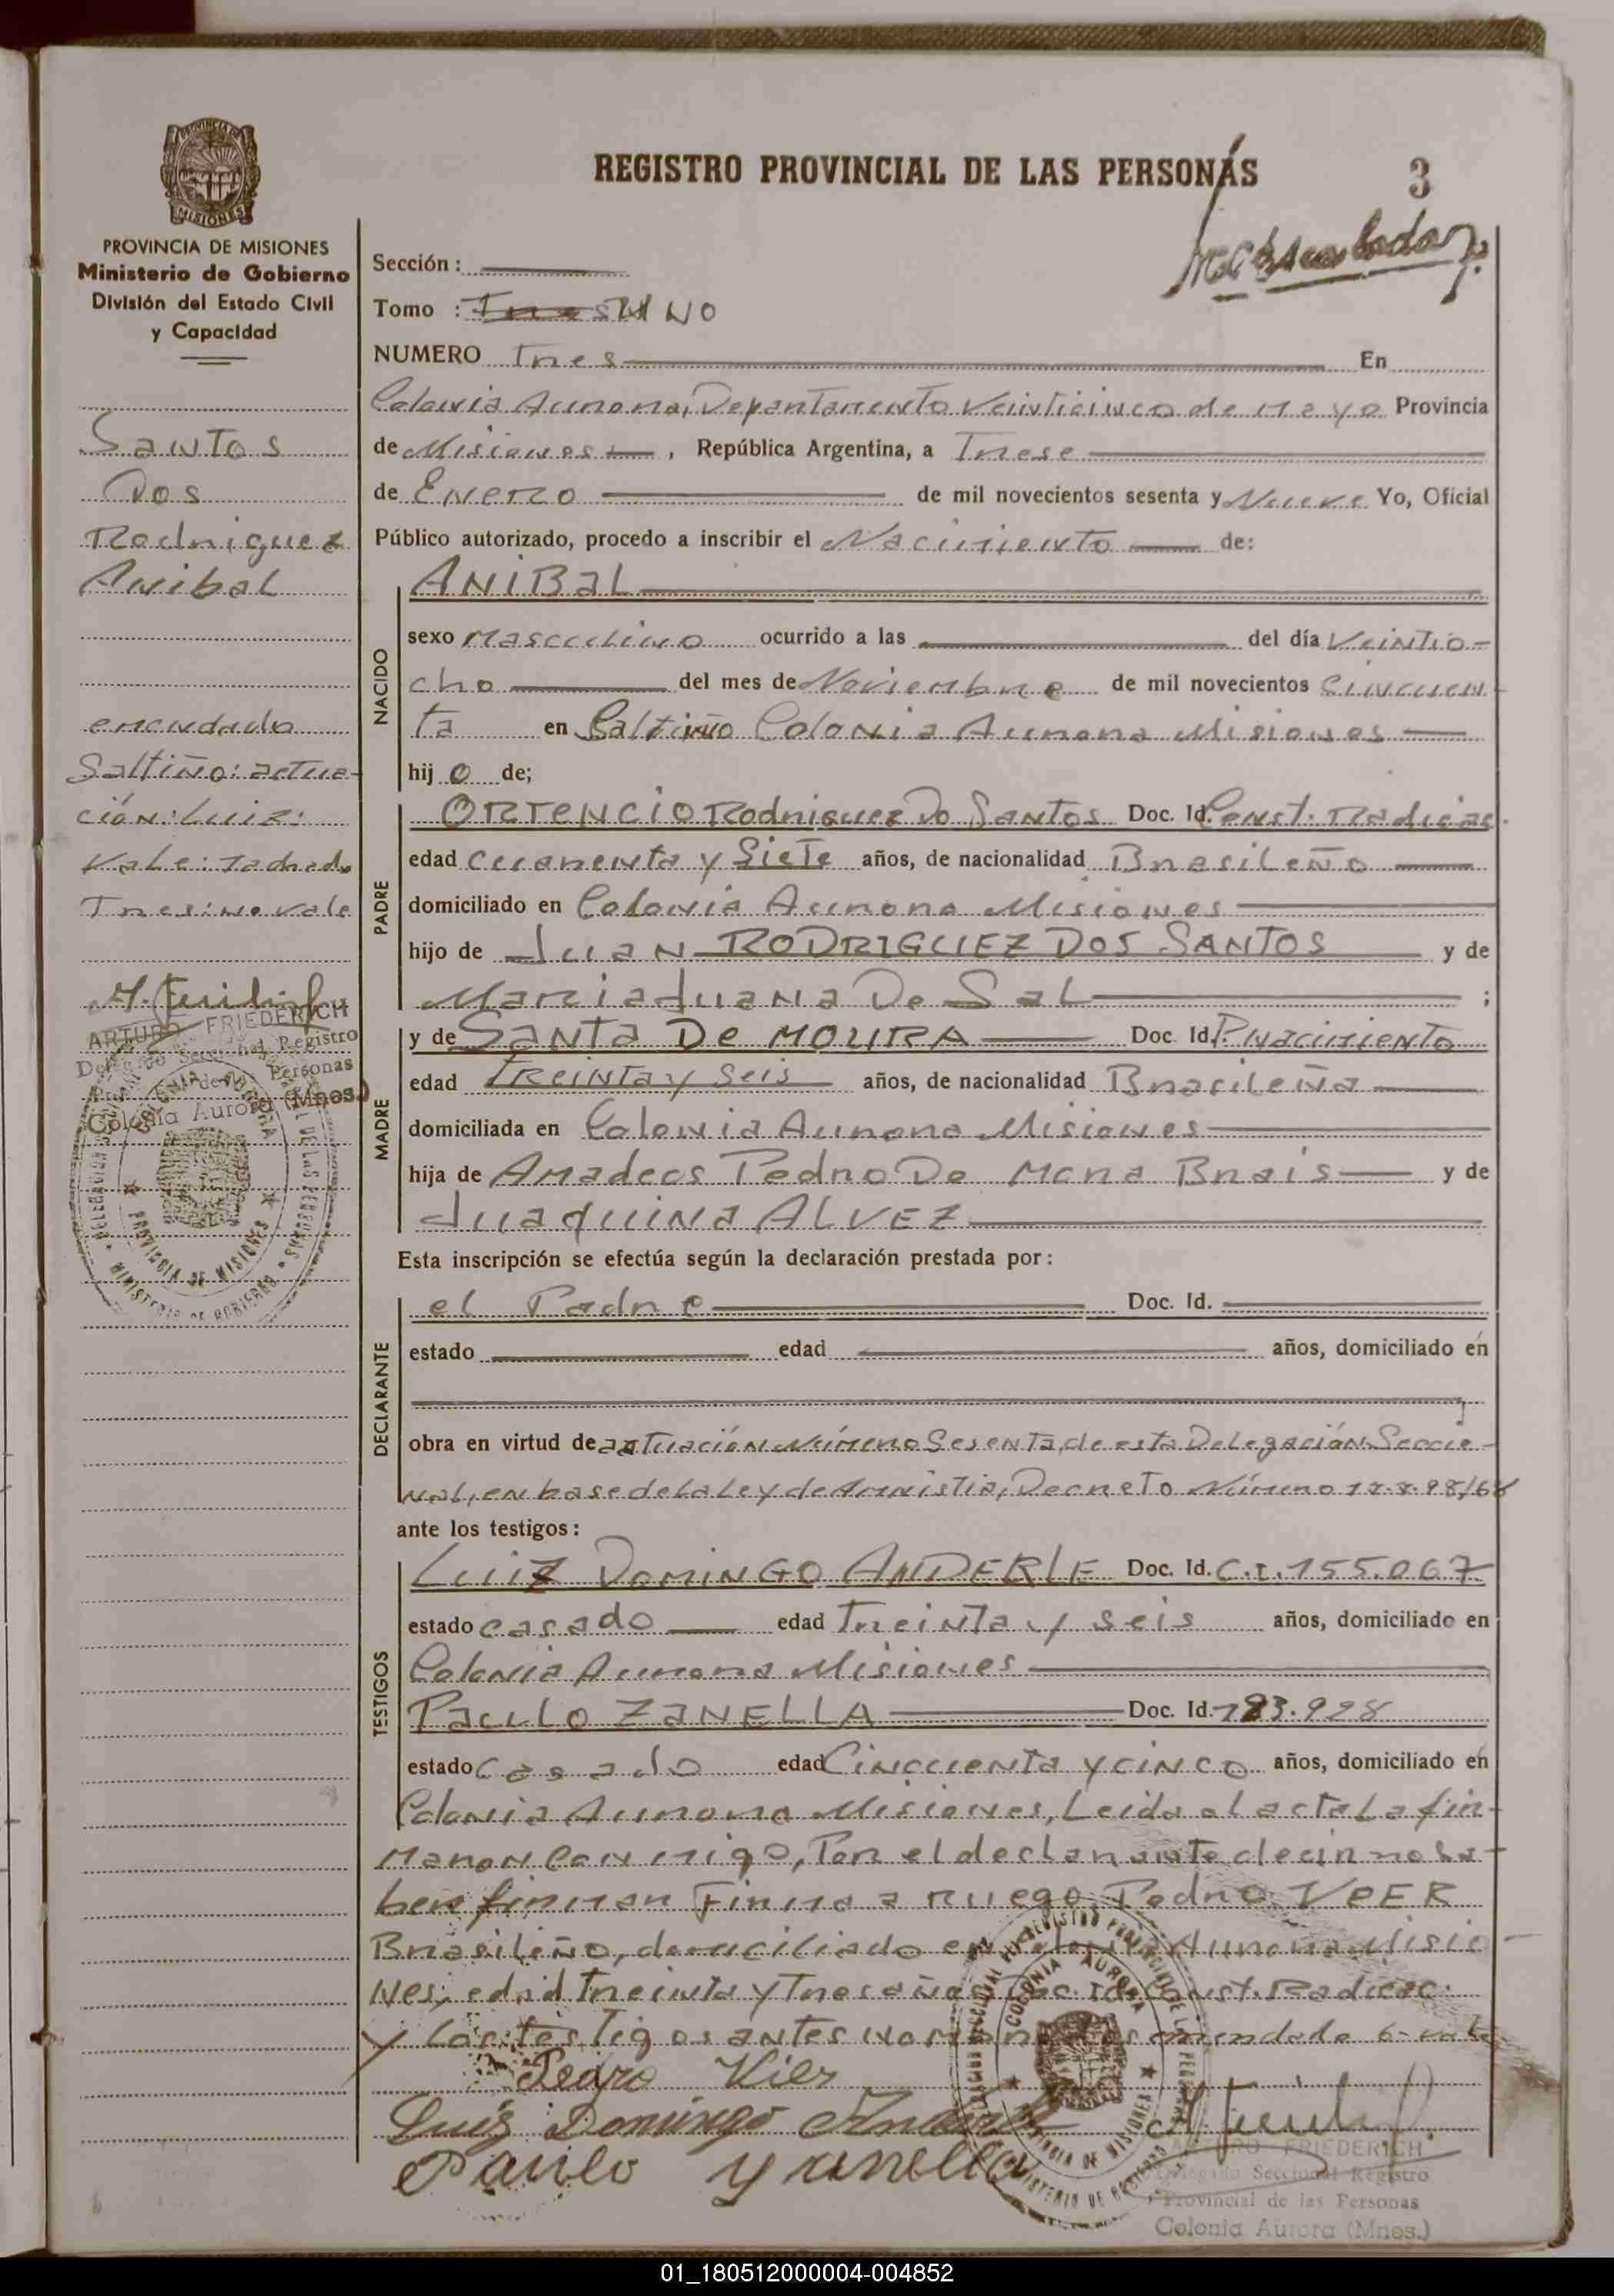 REGISTRO PROVINCIAL DE LAS PERSONAS
3
PROVINCIA DE MISIONES
Ministerio de Gobierno
División del Estado Civil
y Capacidad
Santos
Dos
Rodriguez
Anibal
enendado
Saltiño: actua-
ción: Luiz:
Vale: Tachado
Tres: no vale
ARTURO FRIEDERICH
Delegado Seccional Registro
Provincial de las Personas
Colonia Aurora (Mnes.)
COLONIA AURORA
PROVINCIA DE MISIONES
MINISTERIO DE GOBIERNO
Sección :
Tomo : Tres UNO
NUMERO Tres En
Colonia Aurora, Departamento Veinticinco de Mayo Provincia
de Misiones , República Argentina, a Trese
de Enero de mil novecientos sesenta y Nueve Yo, Oficial
Público autorizado, procedo a inscribir el Nacimiento de:
NACIDO
ANIBAL
sexo Masculino ocurrido a las del día Veintio-
cho del mes de Noviembre de mil novecientos Cincuen-
ta en Saltiño Colonia Aurora Misiones
hij o de;
PADRE
ORTENCIO Rodriguez Do Santos Doc. Id. Const. Radicac.
edad Cuarenta y Siete años, de nacionalidad Brasileño
domiciliado en Colonia Aurora Misiones
hijo de Juan RODRIGUEZ DOS SANTOS y de
Maria Juana De Sal ;
MADRE
y de Santa De MOURA Doc. Id. P. Nacimiento
edad Treinta y Seis años, de nacionalidad Brasileña
domiciliada en Colonia Aurora Misiones
hija de Amadeos Pedro De Mora Brais y de
Juaquina ALVEZ
Esta inscripción se efectúa según la declaración prestada por :
DECLARANTE
el Padre Doc. Id.
estado edad años, domiciliado en
obra en virtud de actuación Número Sesenta, de esta Delegación Seccio-
nal, en base de la Ley de Amnistia, Decreto Número
ante los testigos :
TESTIGOS
Luiz DOMINGO ANDERLE Doc. Id. C.I. 155.067
estado casado edad Treinta y seis años, domiciliado en
Colonia Aurora Misiones
Paulo ZANELLA Doc. Id. 183.928
estado Casado edad Cincuenta y cinco años, domiciliado en
Colonia Aurora Misiones, Leida el acta La fir-
maron Conmigo, Por el declarante decir no sa-
ber firmar Firma a ruego, Pedro VEER
Brasileño, domiciliado en Colonia Aurora Misio-
nes, edad Treinta y Tres años Doc. Id. Const. Radicac.
y Los testigos antes enmendado 6- vale
Pedro Vier
Luis Domingo Anderle
Paulo Zanella
COLONIA AURORA
PROVINCIA DE MISIONES
MINISTERIO DE GOBIERNO
ARTURO FRIEDERICH
Delegado Seccional Registro
Provincial de las Personas
Colonia Aurora (Mnes.)
01_180512000004-004852